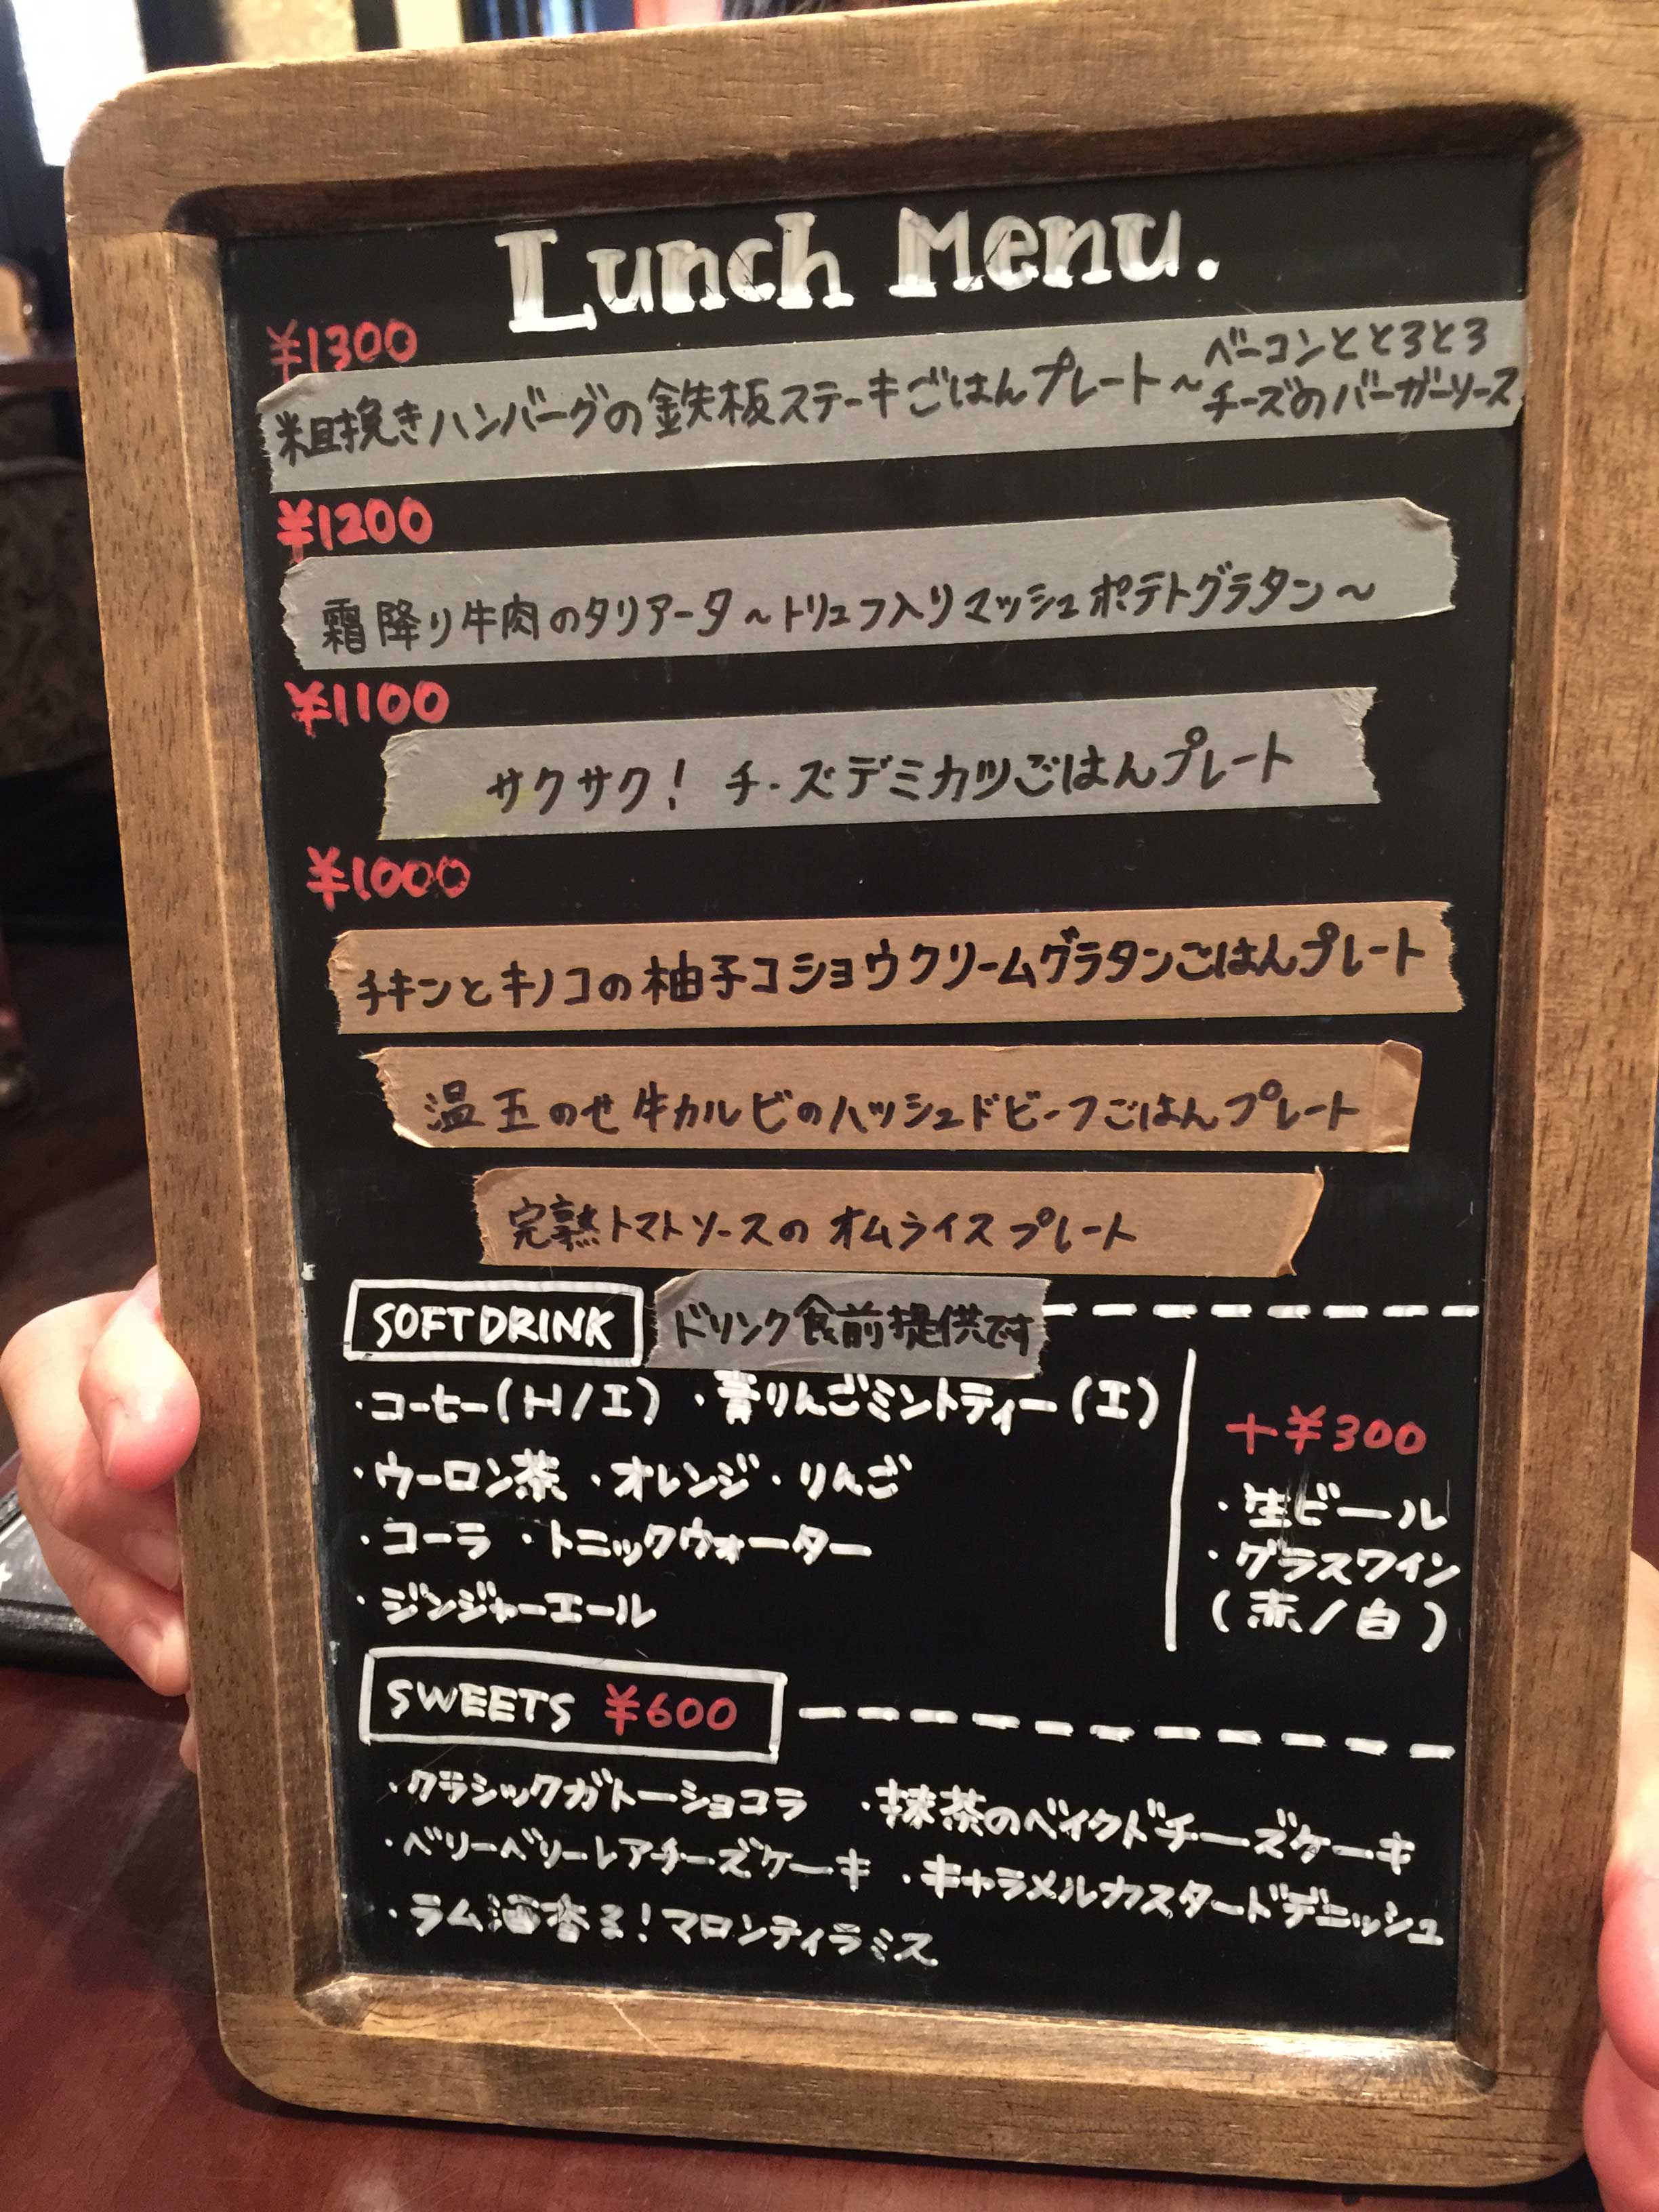 Lunch Menu.
¥1300
粗挽きハンバーグの鉄板ステーキごはんプレート～ベーコンととろとろ
チーズのバーガーソース
¥1200
霜降り牛肉のタリアータ～トリュフ入りマッシュポテトグラタン～
¥1100
サクサク！ チーズデミカツごはんプレート
¥1000
チキンとキノコの柚子コショウクリームグラタンごはんプレート
温玉のせ牛カルビのハッシュドビーフごはんプレート
完熟トマトソースのオムライスプレート
SOFT DRINK ドリンク食前提供です
・コーヒー(H/I) ・青りんごミントティー(I)
・ウーロン茶 ・オレンジ ・りんご
・コーラ ・トニックウォーター
・ジンジャーエール
+¥300
・生ビール
・グラスワイン
(赤/白)
SWEETS ¥600
・クラシックガトーショコラ ・抹茶のベイクドチーズケーキ
・ベリーベリーレアチーズケーキ ・キャラメルカスタードデニッシュ
・ラム酒香る！マロンティラミス